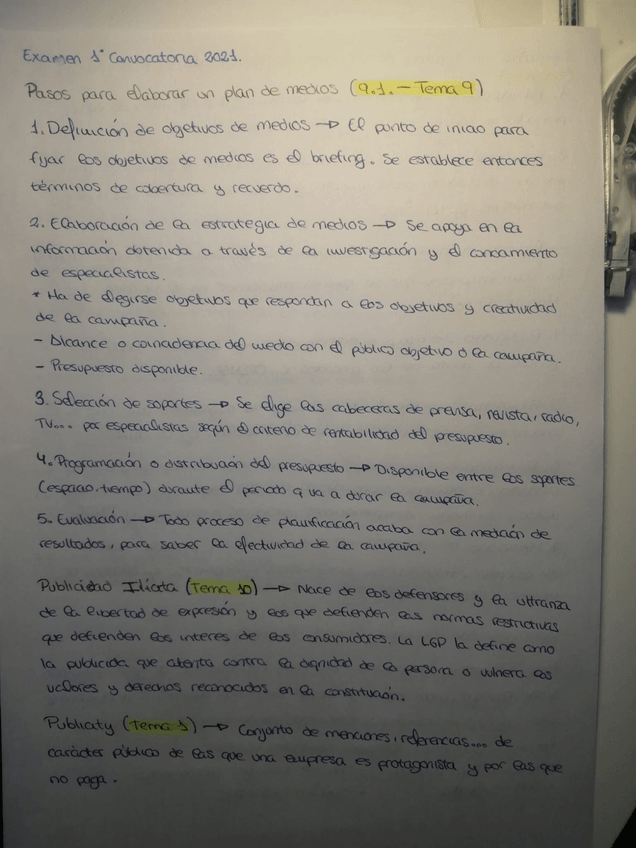 Examen 1ª Convocatoria 2021.
Pasos para elaborar un plan de medios (9.1. - Tema 9)
1. Definición de objetivos de medios → El punto de inicio para
fijar los objetivos de medios es el briefing. Se establece entonces
términos de cobertura y recuerdo.
2. Elaboración de la estrategia de medios → Se apoya en la
información obtenida a través de la investigación y el conocimiento
de especialistas.
* Ha de elegirse objetivos que respondan a los objetivos y creatividad
de la campaña.
- Alcance o coincidencia del medio con el público objetivo d la campaña.
- Presupuesto disponible.
3. Selección de soportes → Se elige las cabeceras de prensa, revista, radio,
TV... por especialistas según el criterio de rentabilidad del presupuesto.
4. Programación o distribución del presupuesto → Disponible entre los soportes
(espacio.tiempo) durante el periodo q va a durar la campaña.
5. Evaluación → Todo proceso de planificación acaba con la medición de
resultados, para saber la efectividad de la campaña.
Publicidad Ilícita (Tema 10) → Nace de los defensores y la ultranza
de la libertad de expresión y los que defienden las normas restrictivas
que defienden los interes de los consumidores. La LGP la define como
la publicida que atenta contra la dignidad de la persona o vulnera los
valores y derechos reconocidos en la constitución.
Publicity (Tema 1) → Conjunto de menciones, referencias... de
carácter público de las que una empresa es protagonista y por las que
no paga.